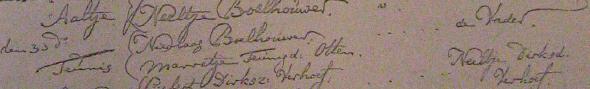 Aaltje Neeltje Boelhouwer. de Vader.
den 30 do Nicolaas Boelhouwer.
Teunis Marretje Teunisd: Otten. Neeltje Dirksd.
Dirksz: Verhoef. Verhoef.